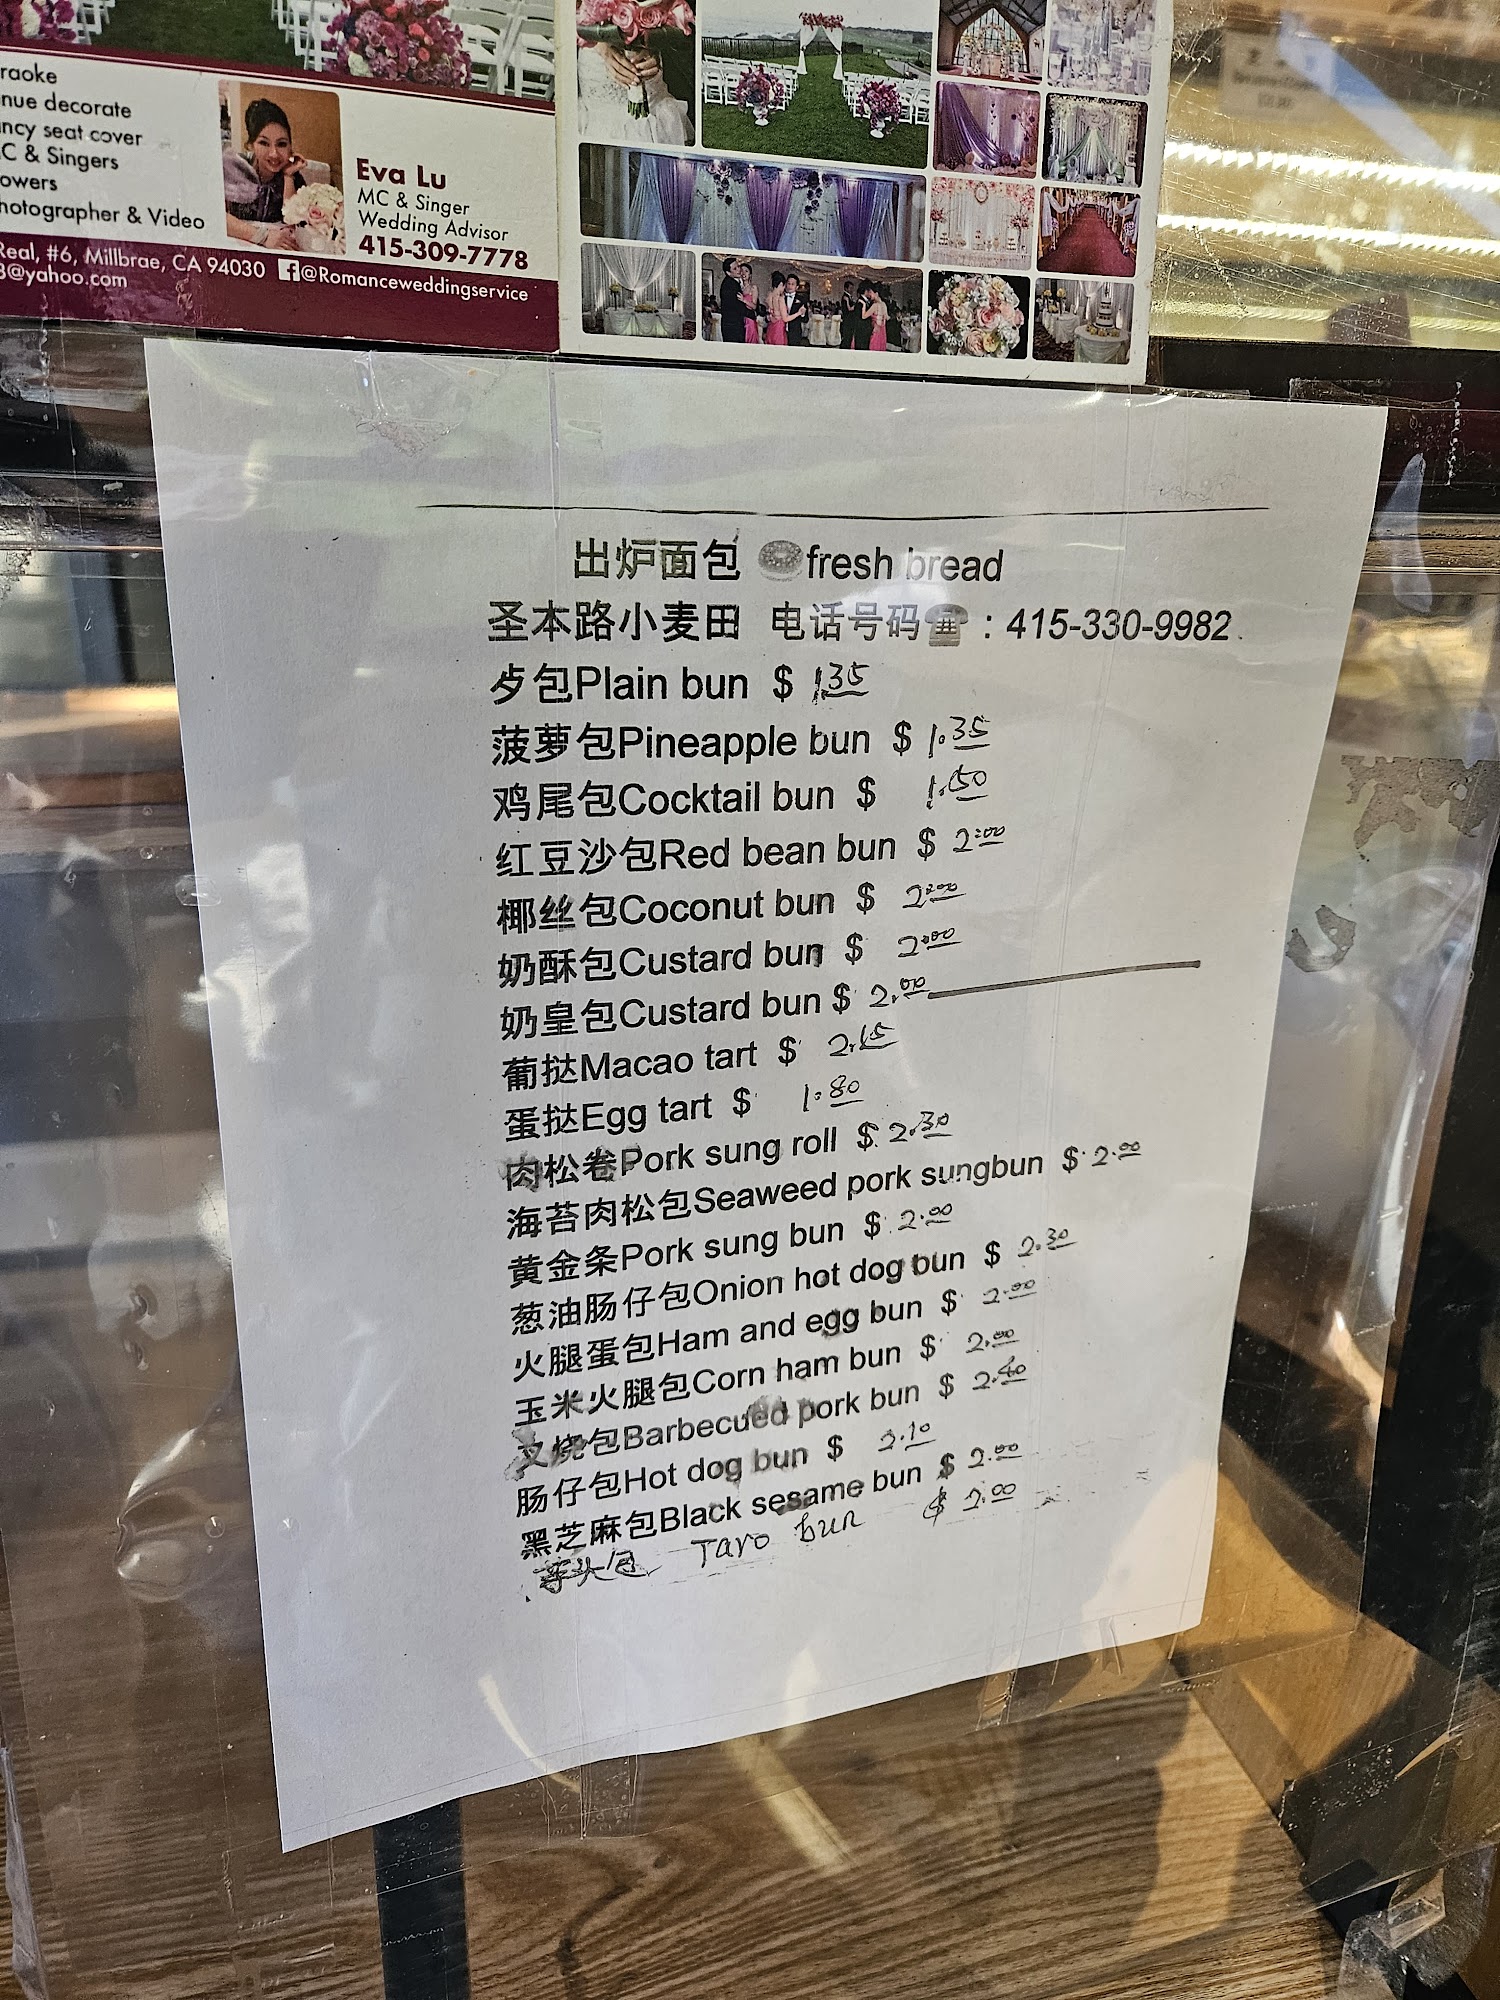 raoke
nue decorate
ncy seat cover
C & Singers
owers
hotographer & Video
Eva Lu
MC & Singer
Wedding Advisor
415-309-7778
Real, #6, Millbrae, CA 94030
@Romanceweddingservice
3@yahoo.com
出炉面包 🍩fresh bread
圣本路小麦田 电话号码☎：415-330-9982
歺包Plain bun $ 1.35
菠萝包Pineapple bun $ 1.35
鸡尾包Cocktail bun $ 1.50
红豆沙包Red bean bun $ 2.00
椰丝包Coconut bun $ 2.00
奶酥包Custard bun $ 2.00
奶皇包Custard bun $ 2.00
葡挞Macao tart $
蛋挞Egg tart $ 1.80
肉松卷Pork sung roll $ 2.30
海苔肉松包Seaweed pork sungbun $ 2.00
黄金条Pork sung bun $ 2.00
葱油肠仔包Onion hot dog bun $ 2.30
火腿蛋包Ham and egg bun $ 2.00
玉米火腿包Corn ham bun $ 2.00
叉烧包Barbecued pork bun $ 2.40
肠仔包Hot dog bun $ 2.10
黑芝麻包Black sesame bun $ 2.00
芋头包 Taro bun $ 2.00